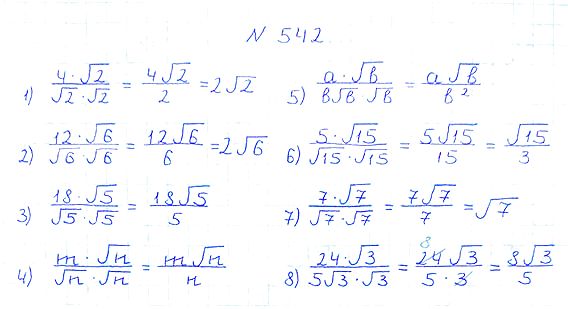 N 542
1) 4·√2 / √2·√2 = 4√2 / 2 = 2√2
2) 12·√6 / √6·√6 = 12√6 / 6 = 2√6
3) 18·√5 / √5·√5 = 18√5 / 5
4) m·√n / √n·√n = m√n / n
5) a·√b / b√b·√b = a√b / b²
6) 5·√15 / √15·√15 = 5√15 / 15 = √15 / 3
7) 7·√7 / √7·√7 = 7√7 / 7 = √7
8) 24·√3 / 5√3·√3 = 8 24√3 / 5·3 = 8√3 / 5